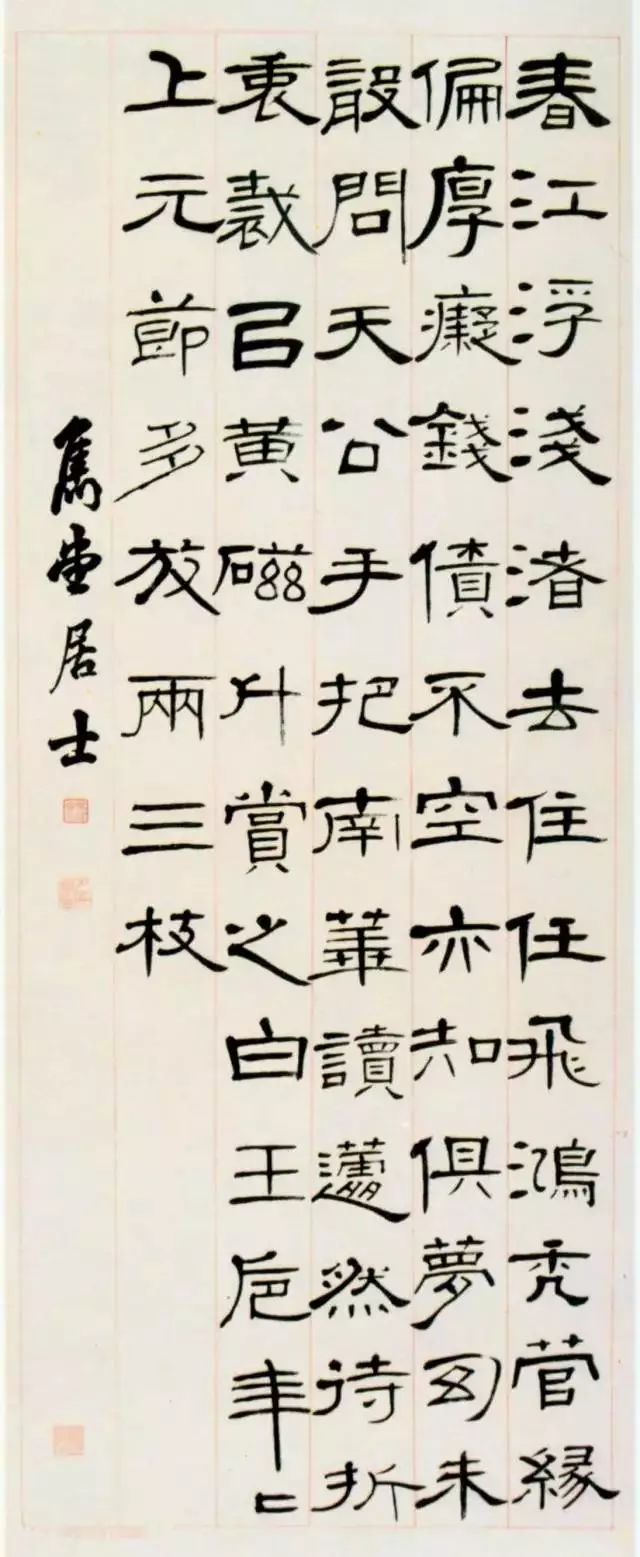 春江浮淺渚去住任飛鴻禿管緣
偏厚癡錢債不空亦知俱夢幻未
敢問天公手把南華讀蘧然待折
衷裁㠯黃磁斗賞之白玉卮年二
上元節多放兩三枝
雋堂居士